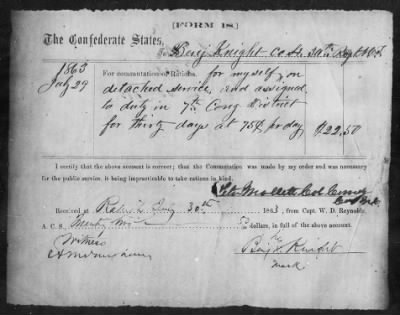 [FORM 18.]
The Confederate States,
To Benj Knight Co H. 30th Regt N.C.T.
1863
July 29
For commutation of Rations for myself, on
detached service, and assigned
to duty in 7th Cong District
for thirty days at 75¢ per day $22.50
I certify that the above account is correct; that the Commutation was made by my order and was necessary
for the public service, it being impracticable to take rations in kind.
Mallett Col Comdg
Received at Raleigh July 30th 1863, from Capt. W. D. Reynolds,
A. C. S., Twenty two 50 dollars, in full of the above account.
Witness his
Benj X Knight
mark